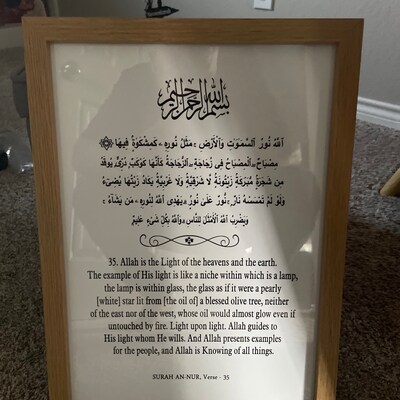 بسم الله الرحمن الرحيم
۞ ٱللَّهُ نُورُ ٱلسَّمَٰوَٰتِ وَٱلْأَرْضِ ۚ مَثَلُ نُورِهِۦ كَمِشْكَوٰةٍ فِيهَا
مِصْبَاحٌ ۖ ٱلْمِصْبَاحُ فِى زُجَاجَةٍ ۖ ٱلزُّجَاجَةُ كَأَنَّهَا كَوْكَبٌ دُرِّىٌّ يُوقَدُ
مِن شَجَرَةٍ مُّبَٰرَكَةٍ زَيْتُونَةٍ لَّا شَرْقِيَّةٍ وَلَا غَرْبِيَّةٍ يَكَادُ زَيْتُهَا يُضِىٓءُ
وَلَوْ لَمْ تَمْسَسْهُ نَارٌ ۚ نُّورٌ عَلَىٰ نُورٍ ۗ يَهْدِى ٱللَّهُ لِنُورِهِۦ مَن يَشَآءُ ۚ
وَيَضْرِبُ ٱللَّهُ ٱلْأَمْثَٰلَ لِلنَّاسِ ۗ وَٱللَّهُ بِكُلِّ شَىْءٍ عَلِيمٌ
35. Allah is the Light of the heavens and the earth.
The example of His light is like a niche within which is a lamp,
the lamp is within glass, the glass as if it were a pearly
[white] star lit from [the oil of] a blessed olive tree, neither
of the east nor of the west, whose oil would almost glow even if
untouched by fire. Light upon light. Allah guides to
His light whom He wills. And Allah presents examples
for the people, and Allah is Knowing of all things.
SURAH AN-NUR, Verse - 35